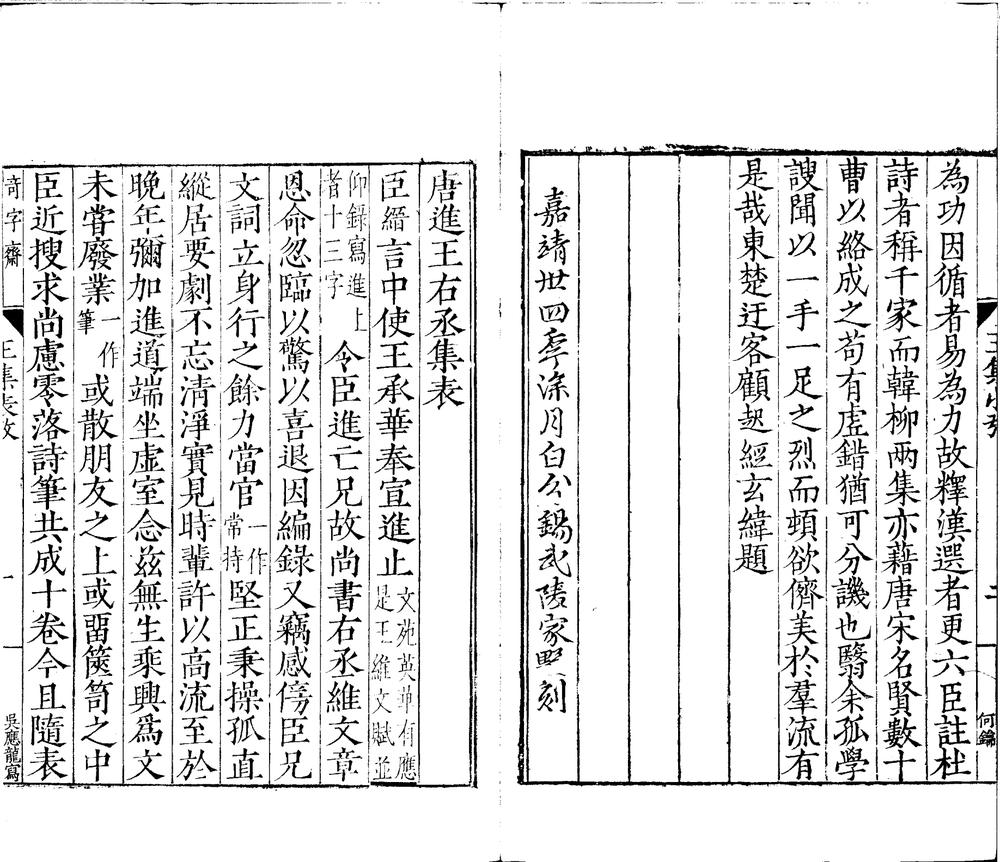 王集小引
二
為功因循者易為力故釋漢選者更六臣註杜
詩者稱千家而韓柳兩集亦藉唐宋名賢數十
曹以絡成之苟有虗錯猶可分譏也翳余孤學
謏聞以一手一足之烈而頓欲儕美於羣流有
是哉東楚迂客顧起經玄緯題
嘉靖丗四秊涂月白公錫武陵家墅刻
唐進王右丞集表
臣縉言中使王承華奉宣進止文苑英華有應是王維文賦並
仰錄寫進上者十三字令臣進亡兄故尚書右丞維文章
恩命忽臨以驚以喜退因編錄又竊感傷臣兄
文詞立身行之餘力當官一作常持堅正秉操孤直
縱居要劇不忘清淨實見時輩許以高流至於
晚年彌加進道端坐虚室念兹無生乘興爲文
未嘗廢業一作筆或散朋友之上或畱篋笥之中
臣近搜求尚慮零落詩筆共成十卷今且隨表
奇字齋
王集表敕
一
吳應龍寫